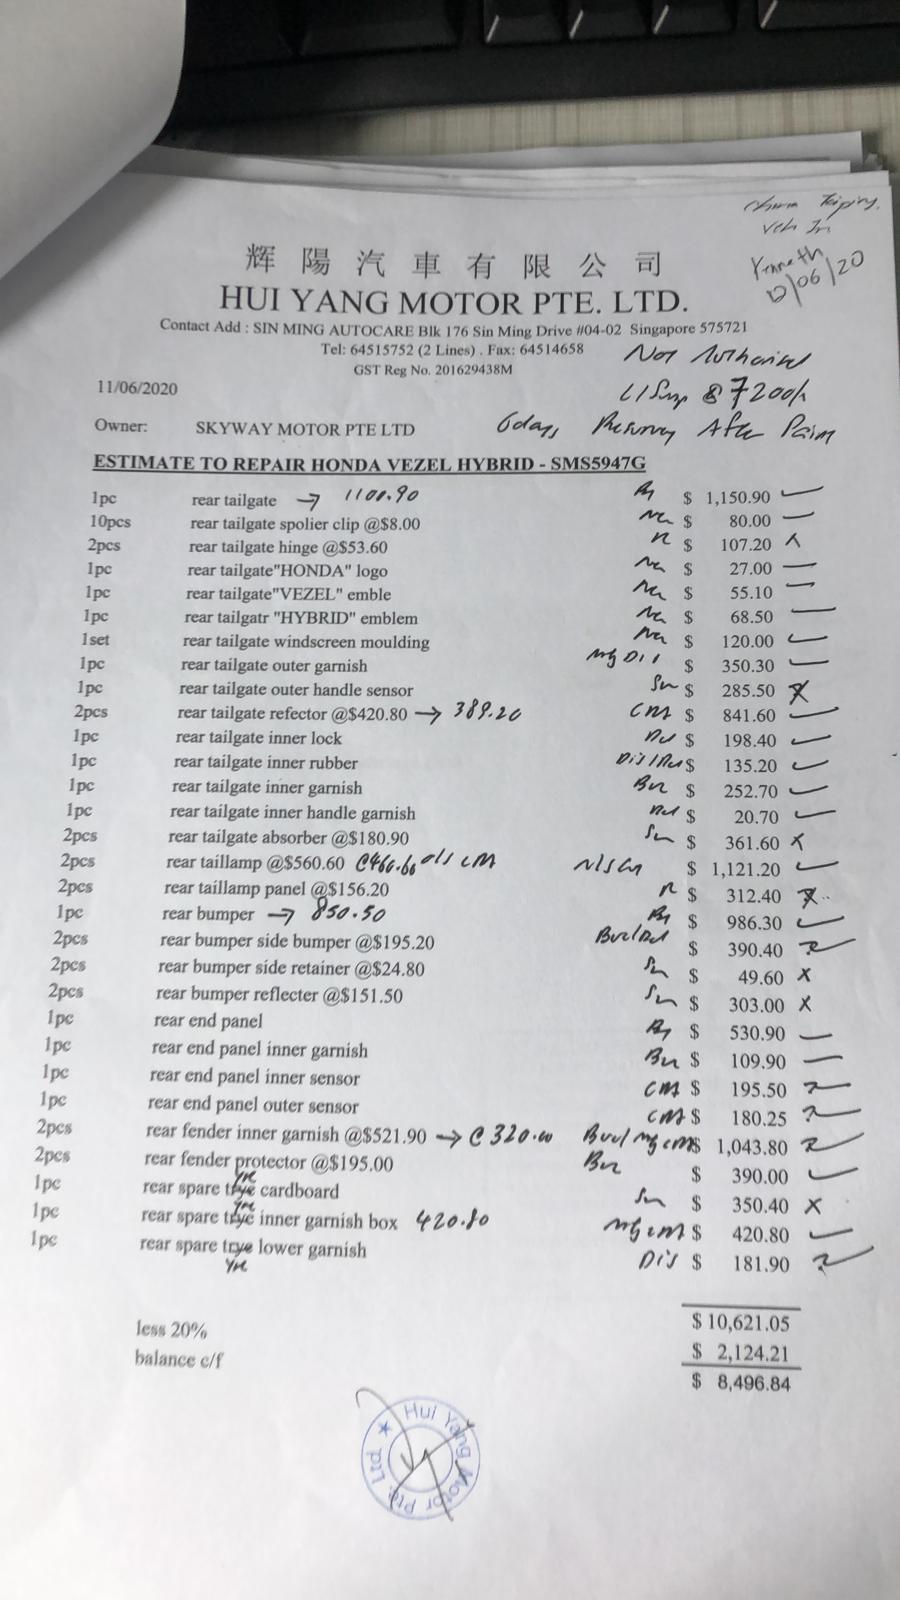 Kenneth
12/06/20
輝陽汽車有限公司
HUI YANG MOTOR PTE. LTD.
Contact Add : SIN MING AUTOCARE Blk 176 Sin Ming Drive #04-02 Singapore 575721
Tel: 64515752 (2 Lines) . Fax: 64514658
GST Reg No. 201629438M
Not Authorised
11/06/2020
Owner: SKYWAY MOTOR PTE LTD
6 days Resurvey After Paint
ESTIMATE TO REPAIR HONDA VEZEL HYBRID - SMS5947G
1pc rear tailgate → 1100.90 $ 1,150.90
10pcs rear tailgate spolier clip @$8.00 $ 80.00
2pcs rear tailgate hinge @$53.60 R $ 107.20 x
1pc rear tailgate"HONDA" logo $ 27.00
1pc rear tailgate"VEZEL" emble $ 55.10
1pc rear tailgatr "HYBRID" emblem $ 68.50
1set rear tailgate windscreen moulding $ 120.00
1pc rear tailgate outer garnish $ 350.30
1pc rear tailgate outer handle sensor $ 285.50 x
2pcs rear tailgate refector @$420.80 → 389.20 $ 841.60
1pc rear tailgate inner lock $ 198.40
1pc rear tailgate inner rubber $ 135.20
1pc rear tailgate inner garnish $ 252.70
1pc rear tailgate inner handle garnish $ 20.70
2pcs rear tailgate absorber @$180.90 $ 361.60 x
2pcs rear taillamp @$560.60 $ 1,121.20
2pcs rear taillamp panel @$156.20 R $ 312.40 x
1pc rear bumper → 850.50 $ 986.30
2pcs rear bumper side bumper @$195.20 $ 390.40
2pcs rear bumper side retainer @$24.80 $ 49.60 x
2pcs rear bumper reflecter @$151.50 $ 303.00 x
1pc rear end panel $ 530.90
1pc rear end panel inner garnish $ 109.90
1pc rear end panel inner sensor $ 195.50
1pc rear end panel outer sensor $ 180.25
2pcs rear fender inner garnish @$521.90 → @ 320.00 $ 1,043.80
2pcs rear fender protector @$195.00 $ 390.00
1pc rear spare trye cardboard $ 350.40 x
1pc rear spare trye inner garnish box 420.80 $ 420.80
1pc rear spare trye lower garnish Dis $ 181.90
$ 10,621.05
less 20% $ 2,124.21
balance c/f $ 8,496.84
Hui Yang Motor Pte. Ltd.